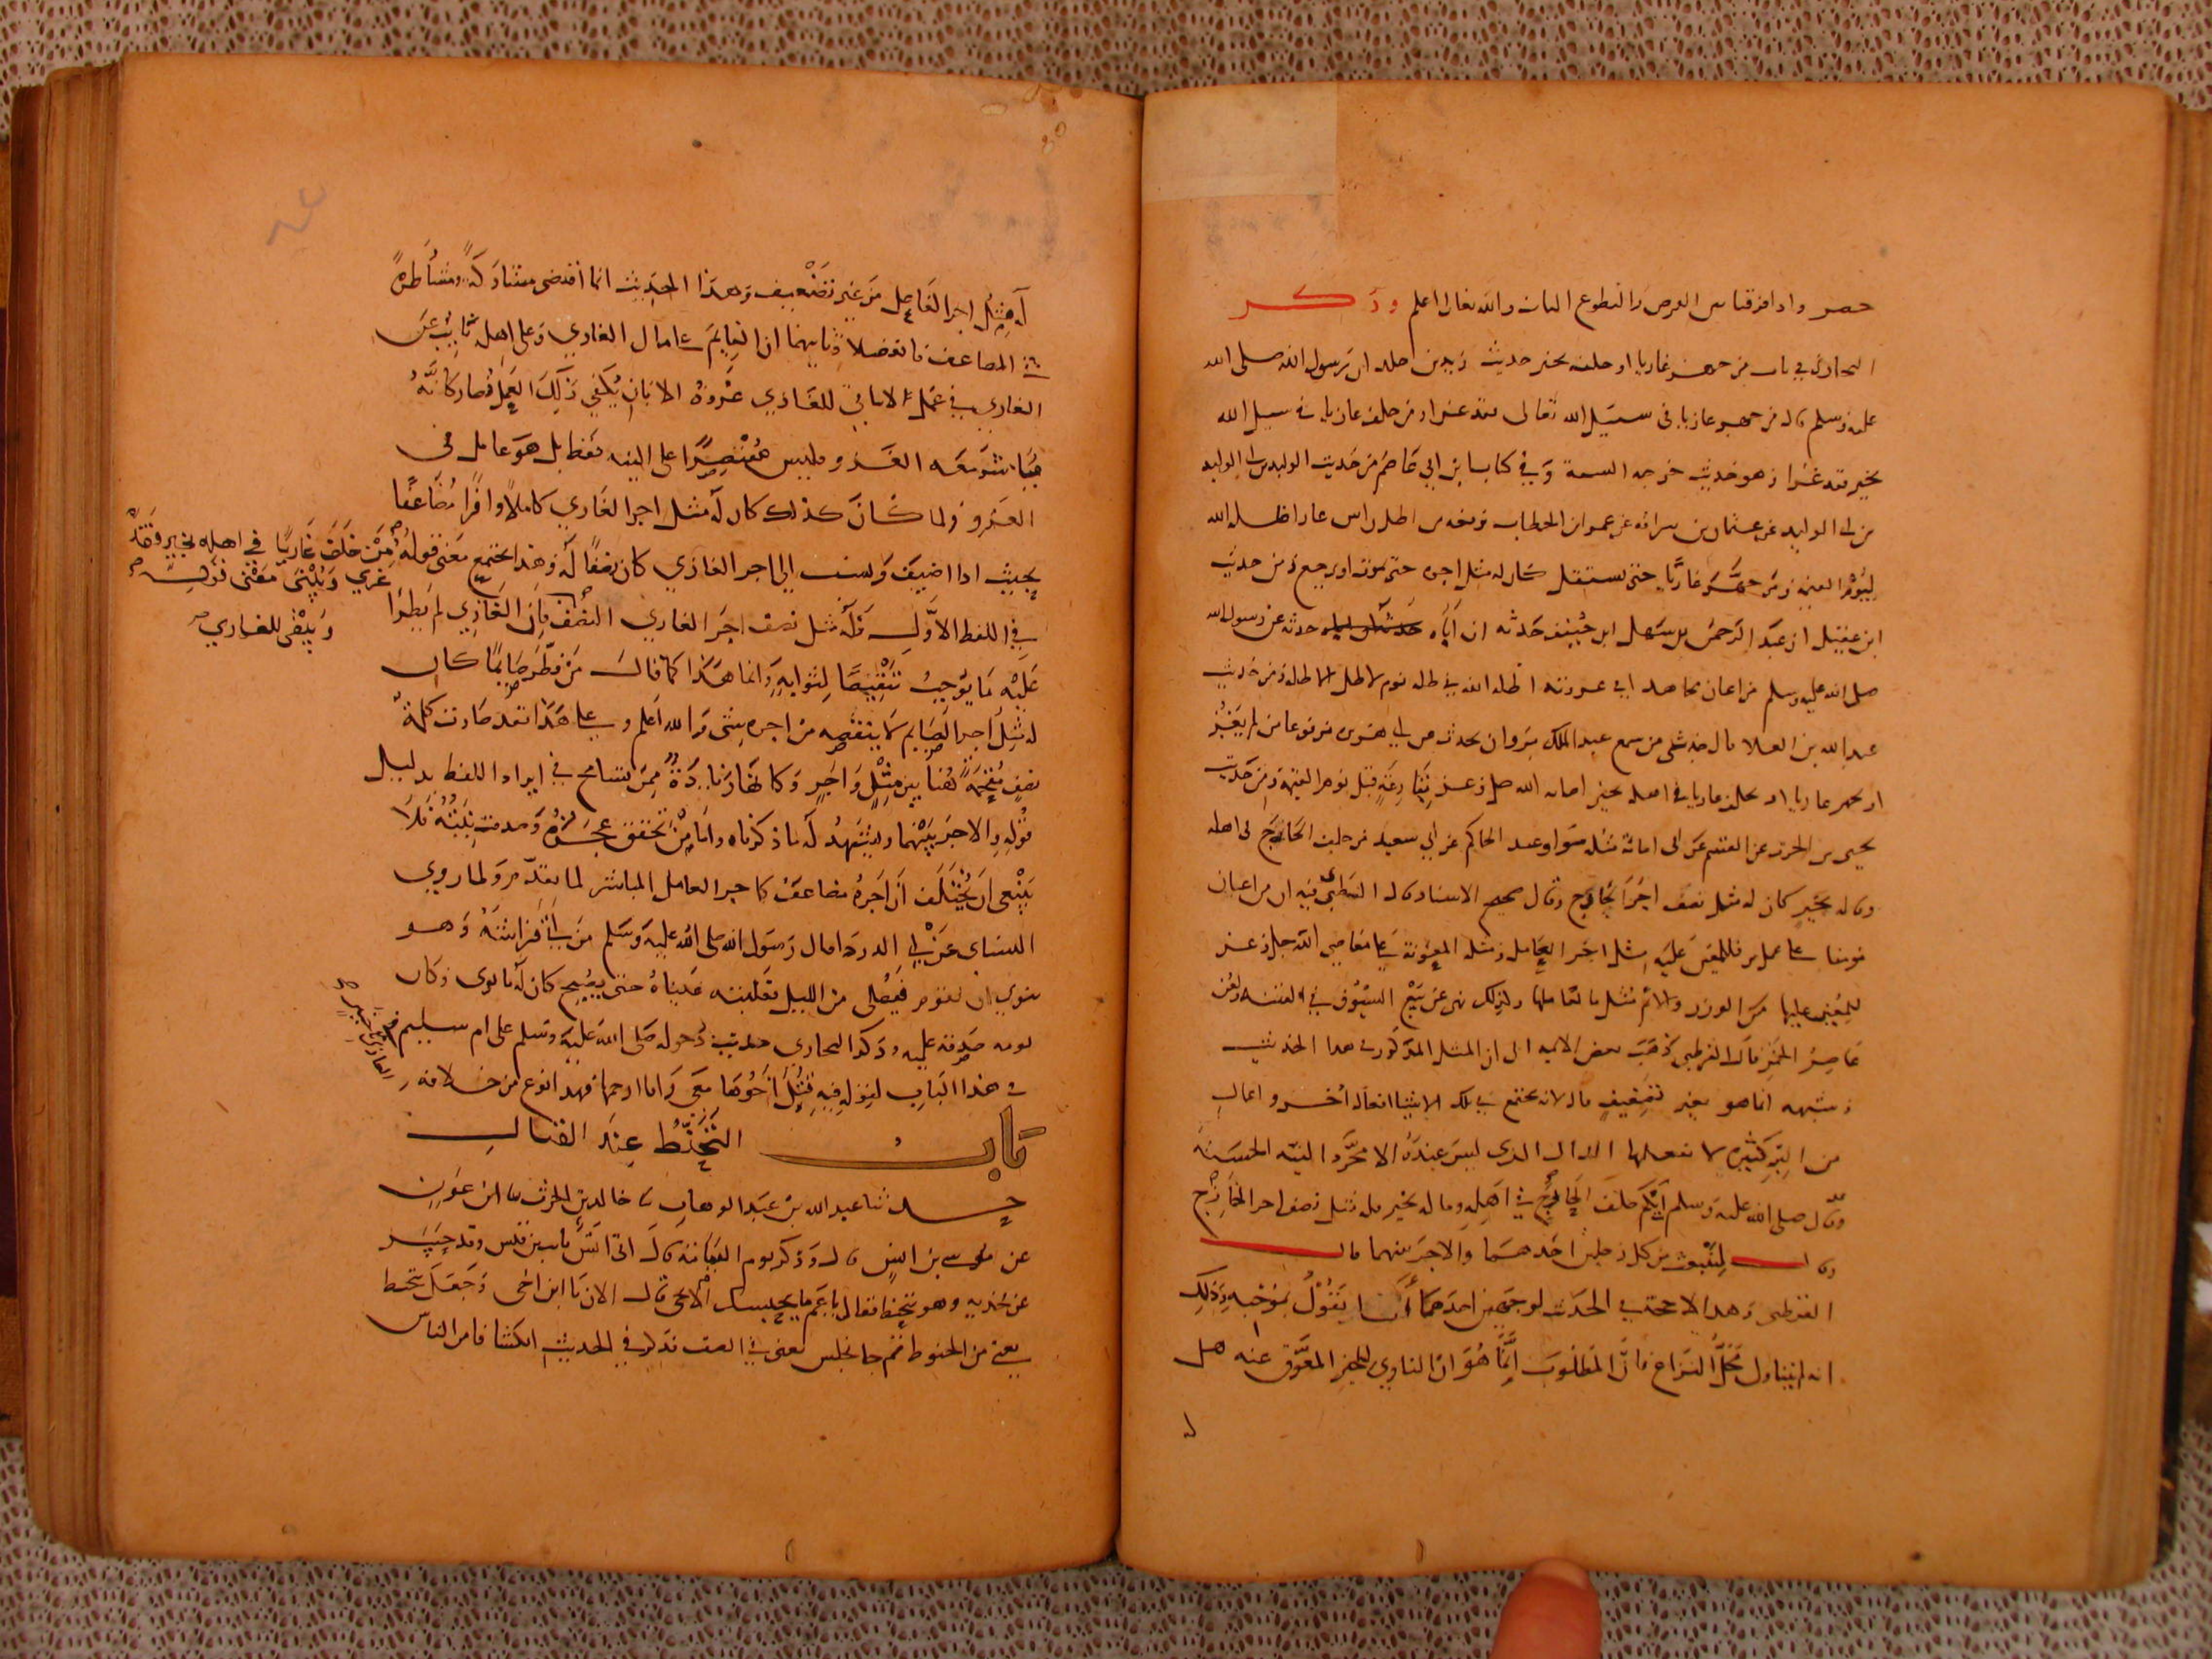 حصر واذا فرقنا بين الفرض والتطوع البات والله تعالى اعلم وذكر
البخاري في باب من جهز غازيا او خلفه بخير حديث زيد بن خالد ان رسول الله صلى الله
عليه وسلم قال من جهز غازيا في سبيل الله تعالى فقد غزا ومن خلف غازيا في سبيل الله
بخير فقد غزا وهو حديث خرجه الستة وفي كتاب ابن ابي عاصم من حديث الوليد بن ابي الوليد
عن عثمان بن سراقة عن عمر ابن الخطاب فرفعه من اظل راس غاز اظله الله
ليوم القيمة ومن جهز غازيا حتى يستقل كان له مثل اجره حتى يموت او يرجع ومن حديث
ابن عقيل ان عبد الرحمن بن سهل ابن حنيف حدثه ان اباه حدثه عن رسول الله
صلى الله عليه وسلم من اعان مجاهدا في عسرته اظله الله في ظله يوم لا ظل الا ظله ومن حديث
عبد الله بن العلا قال حدثني من سمع عبد الملك بن مروان يحدث عن ابي هريرة مرفوعا من لم يغز
او يجهز غازيا او يخلف غازيا في اهله بخير اصابه الله جل وعز بقارعة قبل يوم القيمة ومن حديث
يحيى بن الحرث عن القسم عن ابي امامة مثله سوا وعند الحاكم عن ابي سعيد من خلف الخارج في اهله
وماله بخير كان له مثل نصف اجر الخارج وقال صحيح الاسناد قال الطبري فيه ان من اعان
مومنا على عمل بر فللمعين عليه مثل اجر العامل ومثله المعونة على معاصي الله جل وعز
للمعين عليها من الوزر والاثم مثل ما لعاملها ولذلك نهى عن بيع السيوف في الفتنة ولعن
عاصر الخمر قال القرطبي ذهب بعض الايمة الى ان المثل المذكور في هذا الحديث
وشبهه انما هو بغير تضعيف قال لانه يجتمع في تلك الاشيا افعال اخر واعمال
من البر كثيرة لا يفعلها الدال الذي ليس عنده الا مجرد النية الحسنة
وقال صلى الله عليه وسلم ايكم خلف الخارج في اهله وماله بخير فله مثل نصف اجر الخارج
وقال لينبعث من كل رجلين احدهما والاجر بينهما قال
القرطبي وهذا لا حجة في الحديث لوجهين احدهما انا نقول بموجبه وذلك
انه لم يتناول محل النزاع فان المطلوب انما هو ان الناوي للخير المعوق عنه هل
له مثل اجر الفاعل من غير تضعيف وهذا الحديث انما اقتضى مشاركة ومشاطرة
في المضاعف فانفصلا وثانيهما ان القايم على مال الغازي وعلى اهله نايب عن
الغازي في عمل لا يتاتى للغازي غزوه الا بان يكفي ذلك العمل فصار كانه
مباشر معه الغزو وليس مقتصرا على النية فقط بل هو عامل في
الغزو ولما كان كذلك كان له مثل اجر الغازي كاملا وافرا مضاعفا
بحيث اذا اضيف ونسب الى اجر الغازي كان نصفا له وبهذا يجتمع معنى قوله من خلف غازيا في اهله بخير فقد
غزي ويبقى معنى قوله
في اللفظ الاول فله مثل نصف اجر الغازي ويبقى للغازي النصف فان الغازي لم يطرا
عليه ما يوجب تنقيصا لثوابه وانما هذا كما قال من فطر صايما كان
له مثل اجر الصايم لا ينقصه من اجره شي والله اعلم وعلى هذا فقد صارت كلمة
نصف مقحمة هنا بين مثل واجر وكانها زيادة ممن تسامح في ايراد اللفظ بدليل
قوله والاجر بينهما ويشهد له ما ذكرناه واما من تحقق عجزه وصدقت نيته فلا
ينبغي ان يختلف ان اجره مضاعف كاجر العامل المباشر لما تقدم ولما روي
النساي عن ابي الدردا قال رسول الله صلى الله عليه وسلم من اتى فراشه وهو
ينوي ان يقوم فيصلي من الليل فغلبته عيناه حتى يصبح كان له ما نوى وكان
نومه صدقة عليه وذكر البخاري حديث دخوله صلى الله عليه وسلم على ام سليم
في هذا الباب لقوله فيه قتل اخوها معي واما ارحمها فهذا نوع من خلافة
الغازي بخير
باب التحنط عند القتال
حدثنا عبد الله بن عبد الوهاب نا خالد بن الحرث نا ابن عون
عن موسى بن انس قال وذكر يوم اليمامة قال اتى انس ثابت بن قيس وقد حسر
عن فخذيه وهو يتحنط فقال يا عم ما يحبسك الا تجي قال الان يا ابن اخي وجعل يتحنط
يعني من الحنوط ثم جا فجلس يعني في الصف فذكر في الحديث انكشافا من الناس